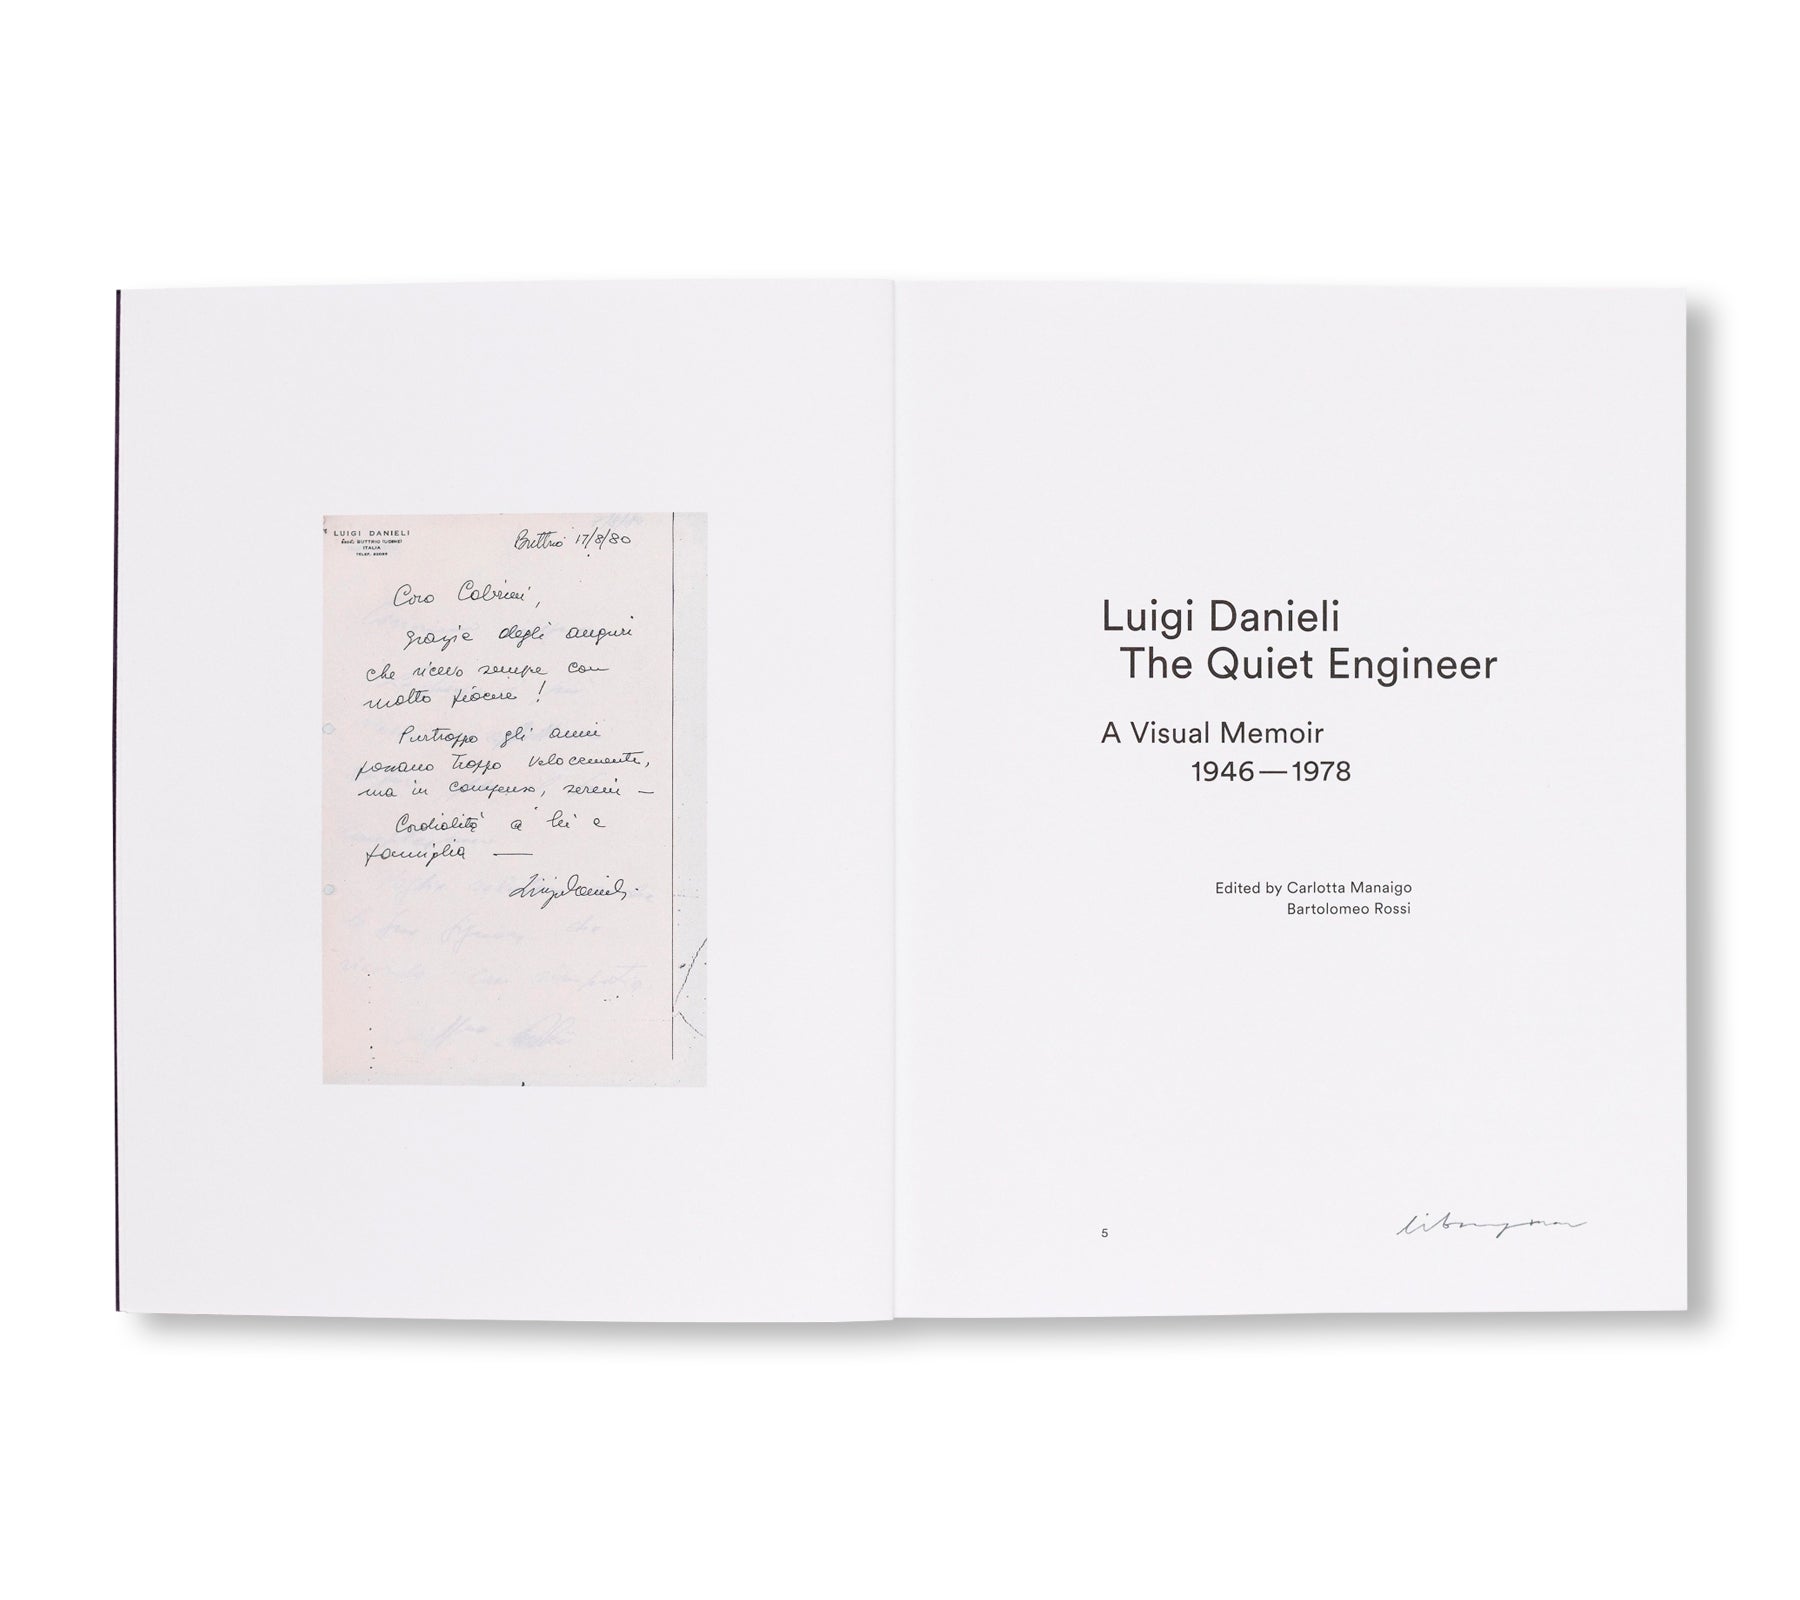 LUIGI DANIELI
BUTTRIO (UDINE)
ITALIA
TELEF.
Buttrio 17/8/80
Caro Cabrini,
grazie degli auguri
che ricevo sempre con
molto piacere !
Purtroppo gli anni
passano troppo velocemente,
ma in compenso, sereni —
Cordialità a lei e
famiglia —
Luigi Danieli
Luigi Danieli
The Quiet Engineer
A Visual Memoir
1946 — 1978
Edited by Carlotta Manaigo
Bartolomeo Rossi
5
libraryman